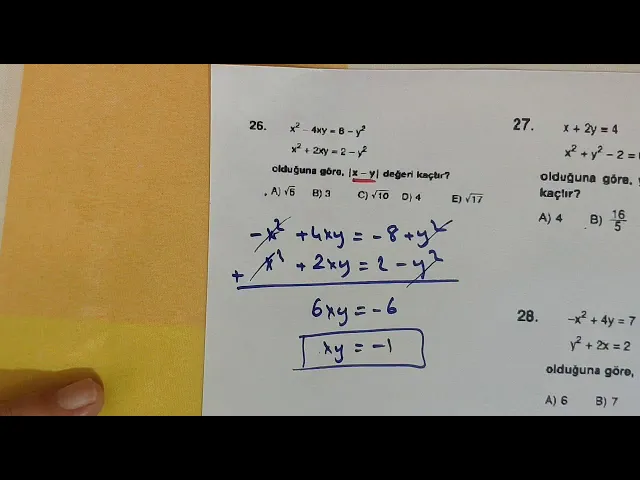 26. x² – 4xy = 8 – y²
x² + 2xy = 2 – y²
olduğuna göre, |x – y| değeri kaçtır?
A) √5 B) 3 C) √10 D) 4 E) √17
–x² + 4xy = –8 + y²
+ x² + 2xy = 2 – y²
6xy = –6
xy = –1
27. x + 2y = 4
x² + y² – 2 =
olduğuna göre,
kaçtır?
A) 4 B) 16/5
28. –x² + 4y = 7
y² + 2x = 2
olduğuna göre,
A) 6 B) 7